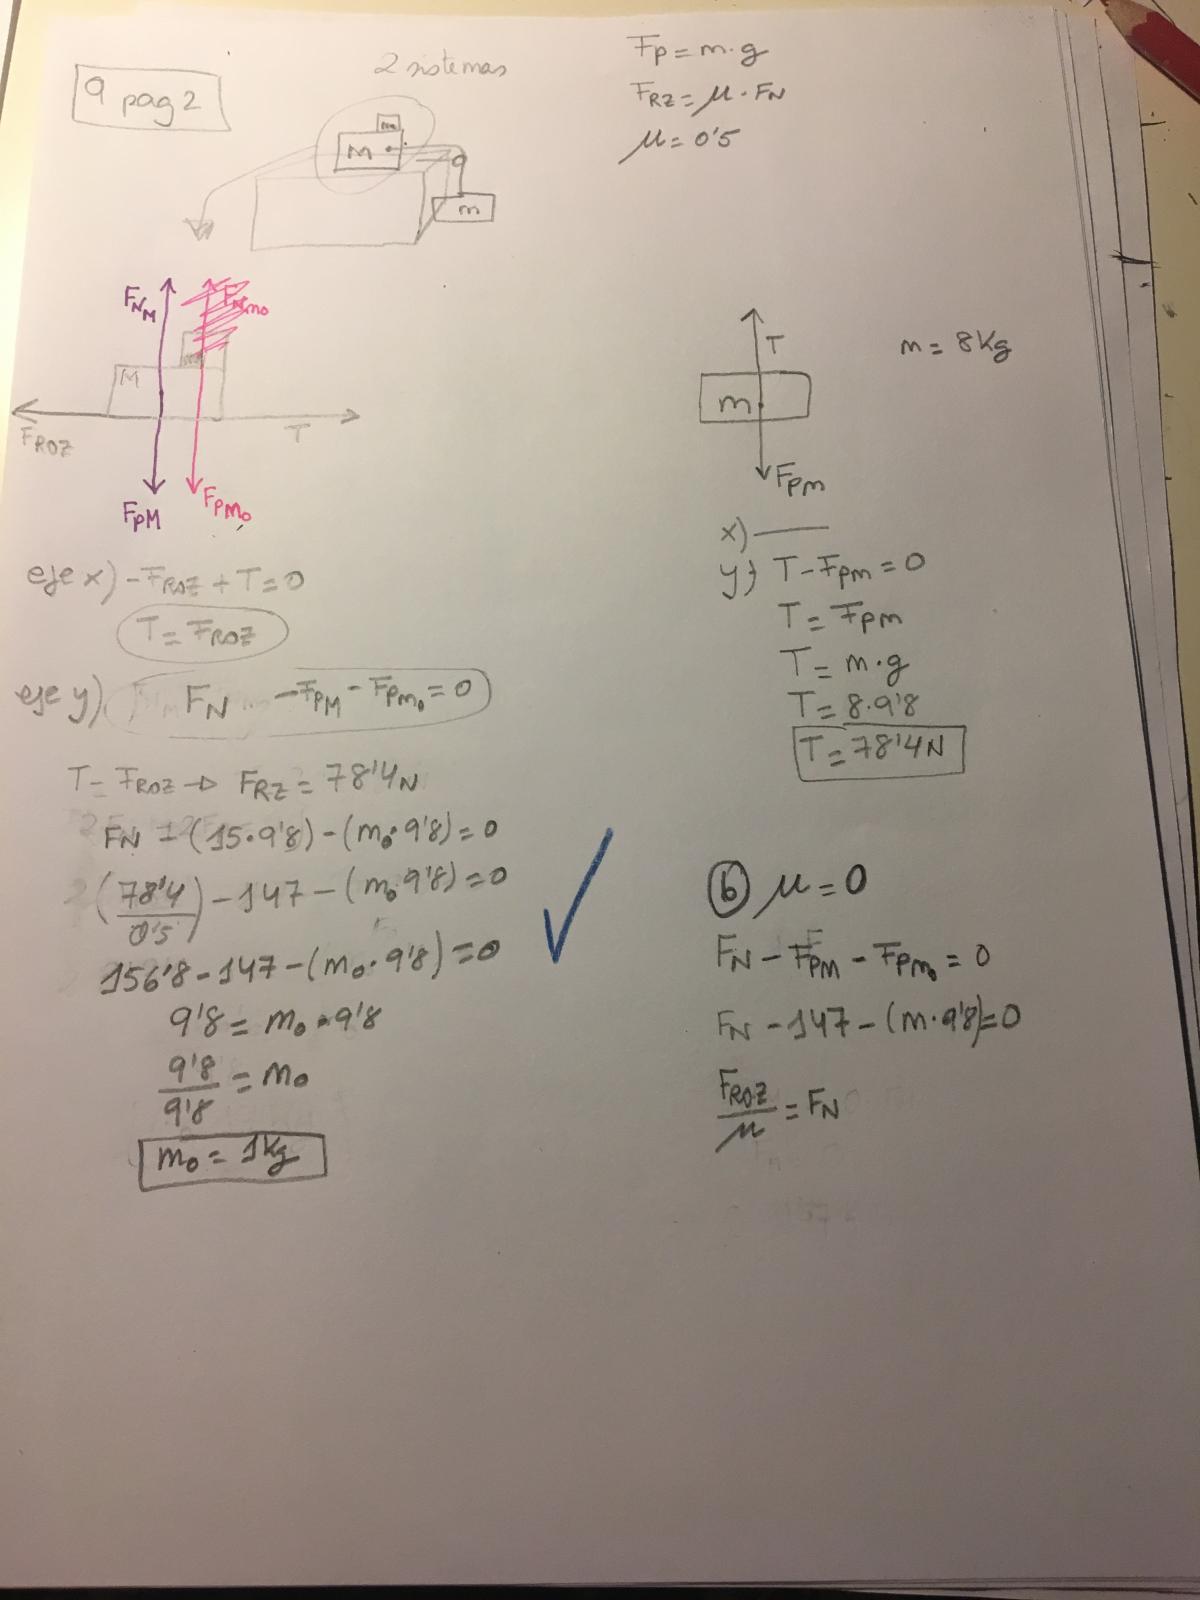 9 pag 2
2 sistemas
Fp = m·g
FRZ = μ·FN
μ = 0'5
M
m
FNM
M
FROZ
T
FpM
Fpmo
T
m
Fpm
m = 8Kg
eje x) -FROZ + T = 0
T = FROZ
eje y) FN - FpM - Fpmo = 0
T = FROZ → FRZ = 78'4N
FN - (15·9'8) - (mo·9'8) = 0
(78'4/0'5) - 147 - (mo·9'8) = 0
156'8 - 147 - (mo·9'8) = 0
9'8 = mo·9'8
9'8/9'8 = mo
mo = 1Kg
x) —
y) T - Fpm = 0
T = Fpm
T = m·g
T = 8·9'8
T = 78'4N
b μ = 0
FN - FpM - Fpmo = 0
FN - 147 - (m·9'8) = 0
FROZ/μ = FN